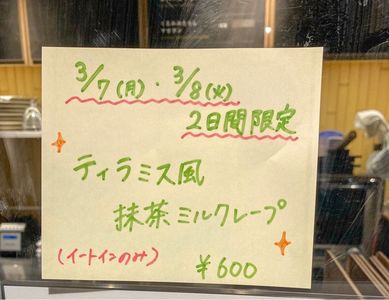 3/7(月)・3/8(火)
2日間限定
ティラミス風
抹茶ミルクレープ
(イートインのみ)
¥600